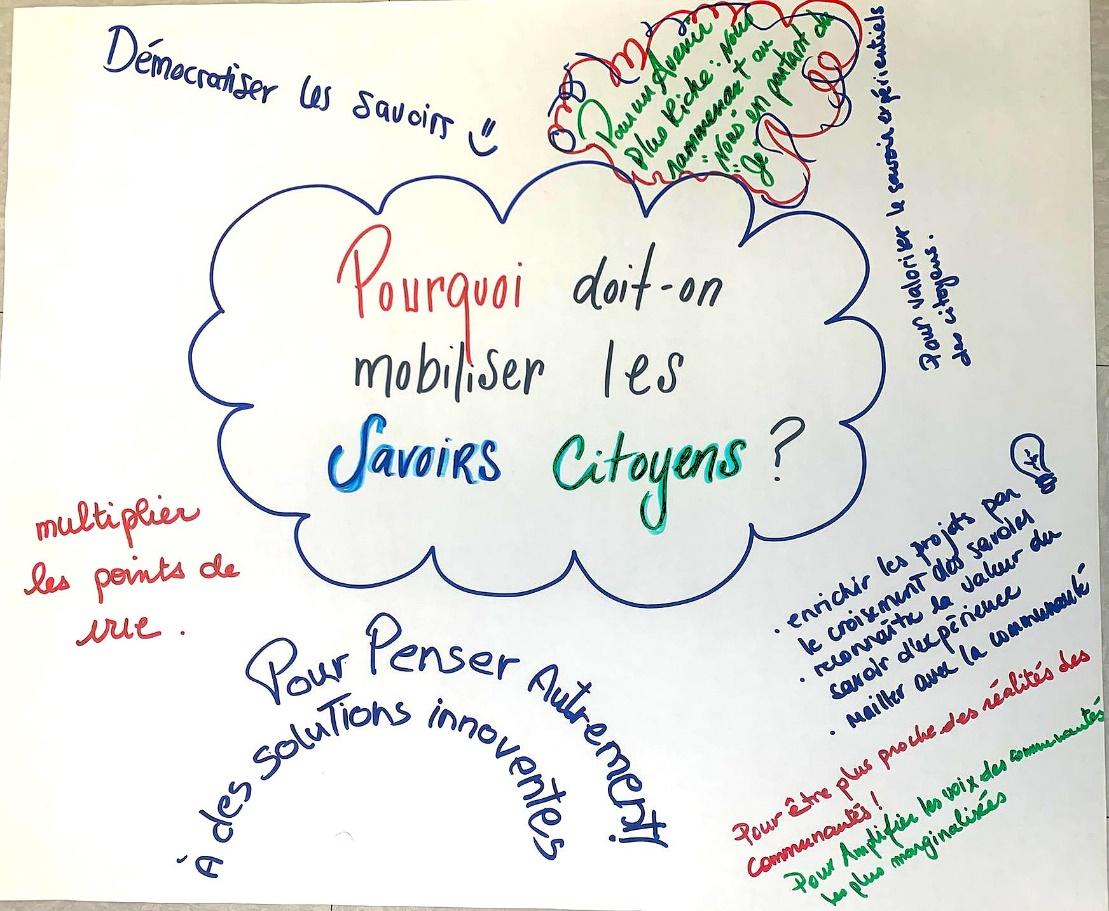 Démocratiser les savoirs
Pour un Avenir
Plus Riche : Nous
rammenant au
"Nous" en partant du
"Je"
Pour valoriser le savoir expérientiels
des citoyens.
Pourquoi doit-on
mobiliser les
Savoirs Citoyens ?
multiplier
les points de
vue.
Pour Penser Autrement!
à des solutions innoventes
• enrichir les projets par
le croisement des savoirs
• reconnaître la valeur du
savoir d'expérience
• mailler avec la communauté
Pour être plus proche des réalités des
communautés!
Pour Amplifier les voix des communautés
les plus marginalisées